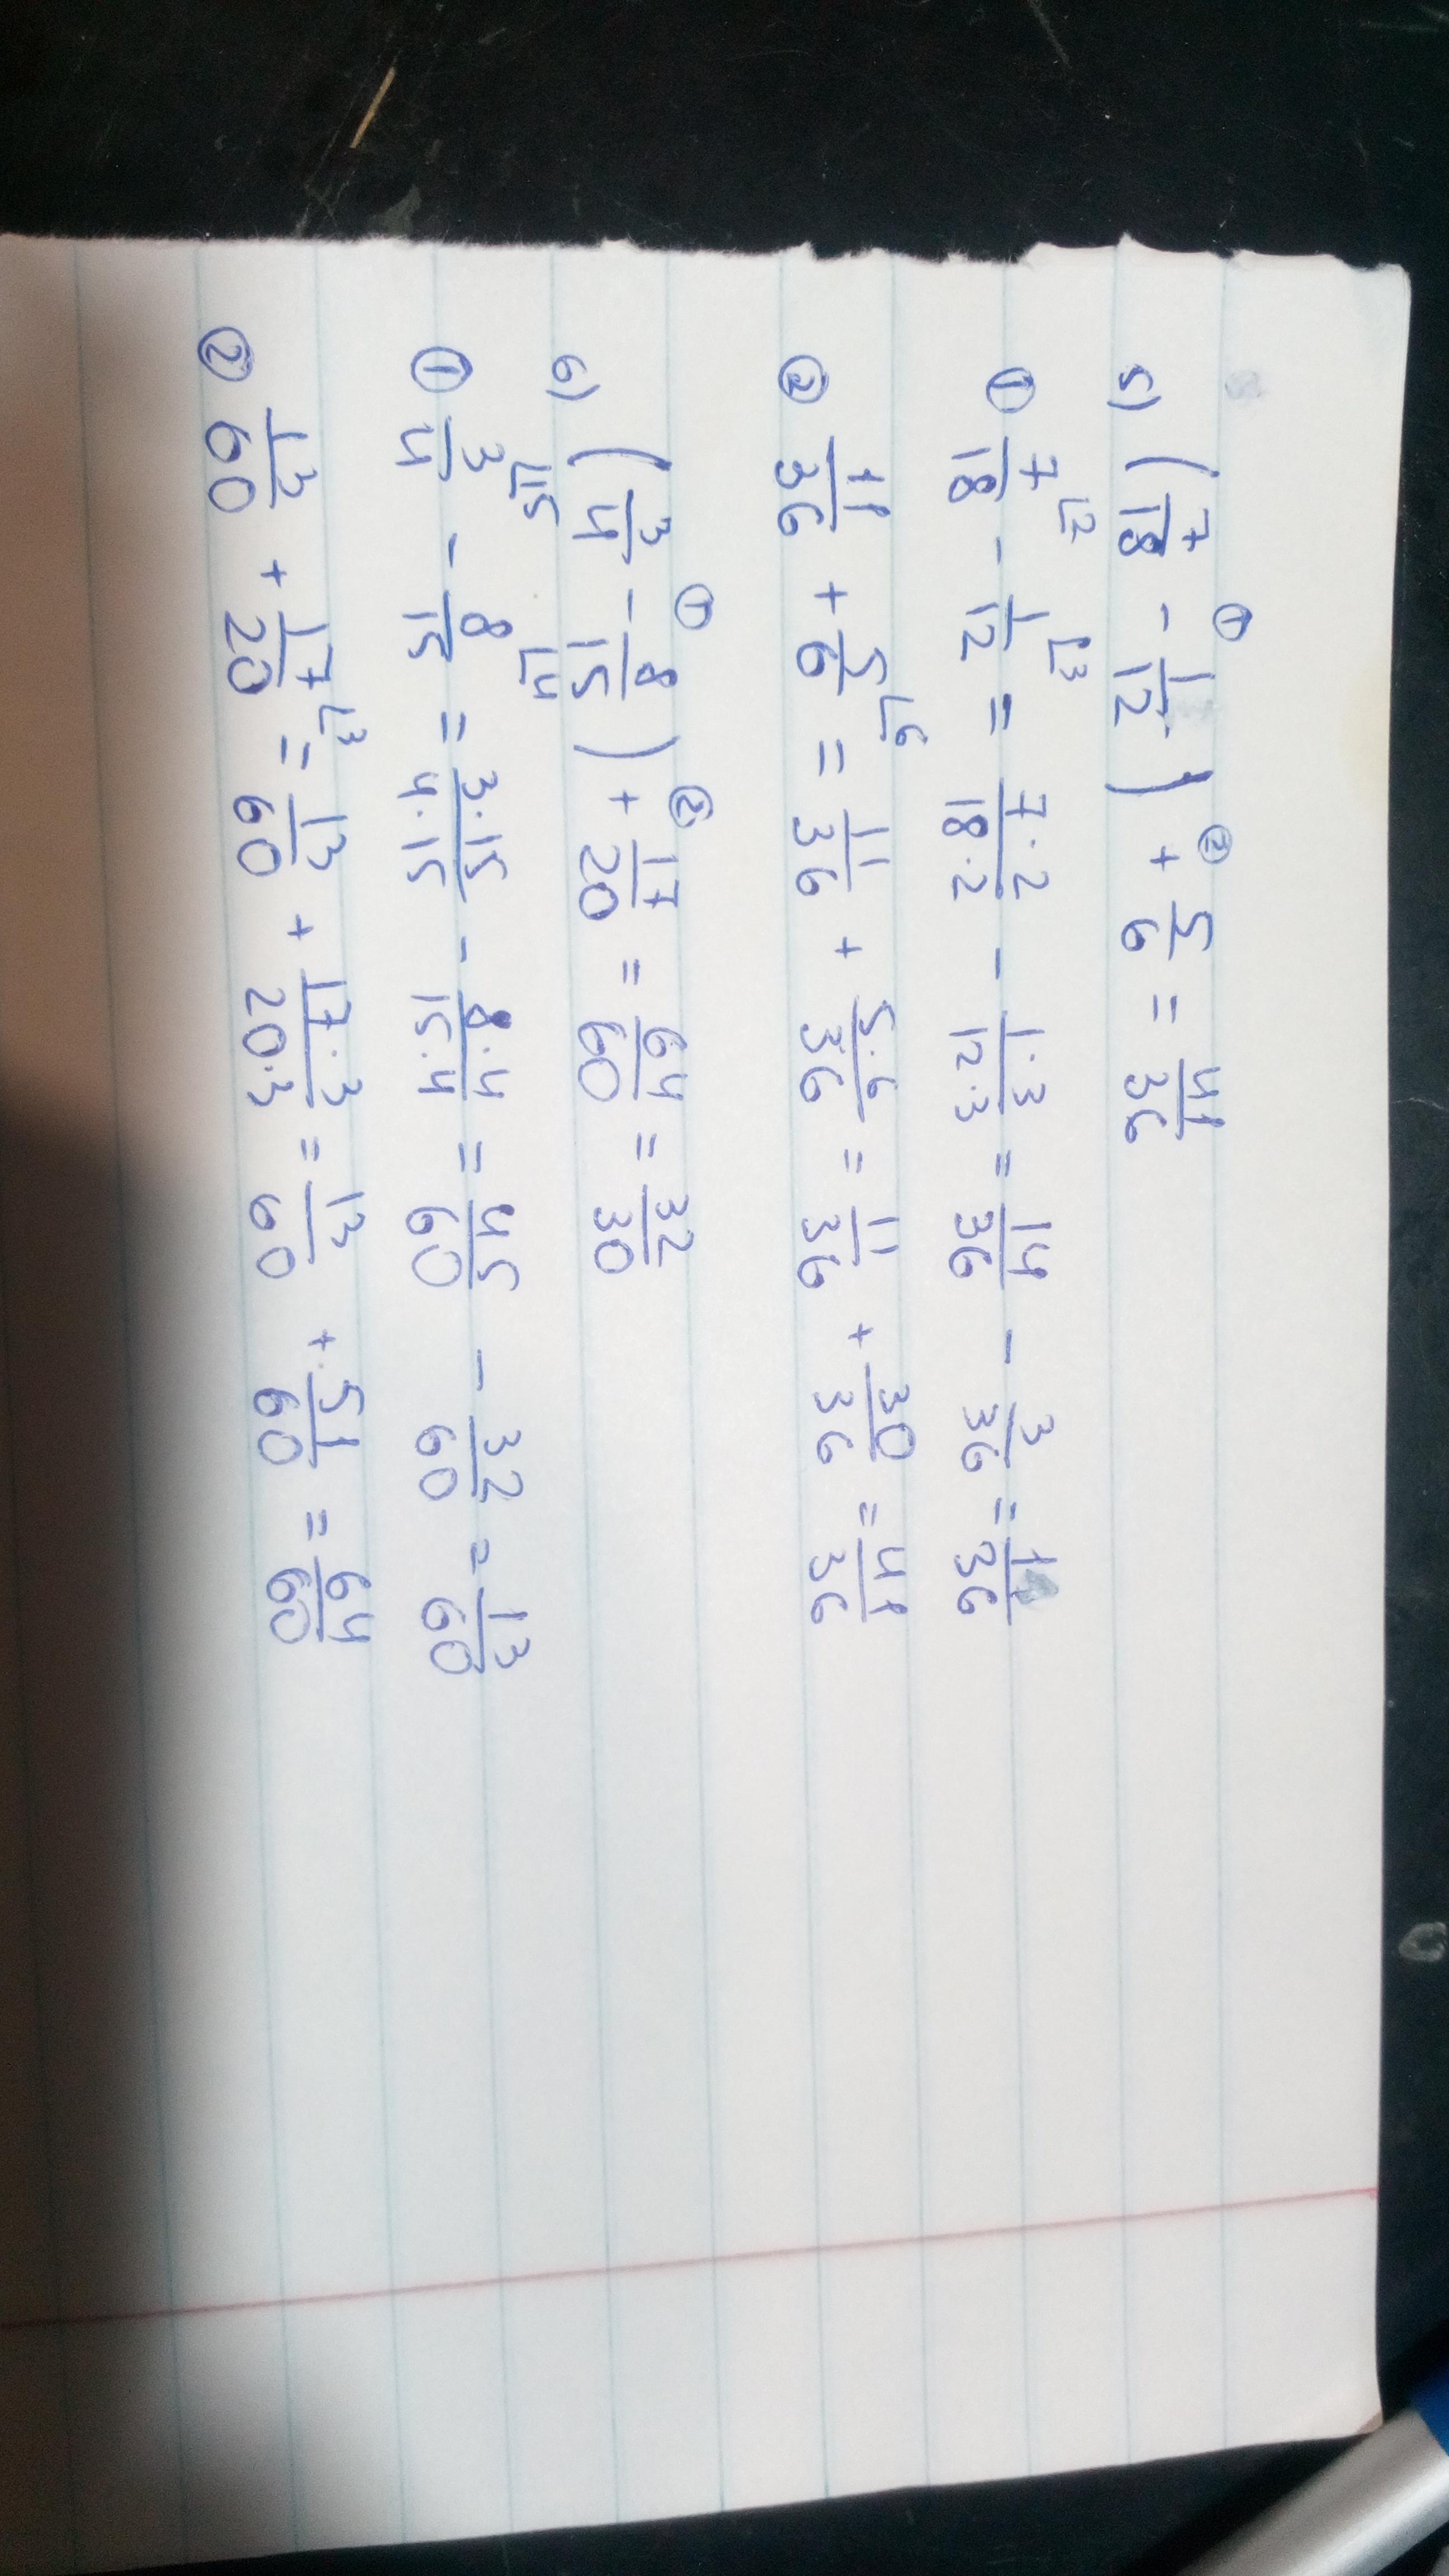 5) (7/18 - 1/12) + 5/6 = 41/36
① ②
① 7/18 - 1/12 = 7·2/18·2 - 1·3/12·3 = 14/36 - 3/36 = 11/36
② 11/36 + 5/6 = 11/36 + 5·6/36 = 11/36 + 30/36 = 41/36
6) (3/4 - 8/15) + 17/20 = 64/60 = 32/30
① ②
① 3/4 - 8/15 = 3·15/4·15 - 8·4/15·4 = 45/60 - 32/60 = 13/60
② 13/60 + 17/20 = 13/60 + 17·3/20·3 = 13/60 + 51/60 = 64/60